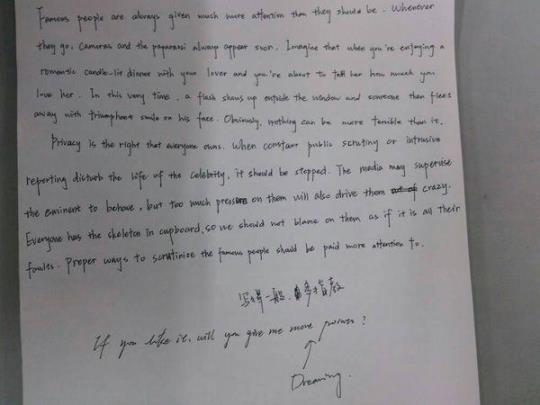 Famous people are always given much more attention than they should be. Whenever
they go, cameras and the paparassi always appear soon. Imagine that when you're enjoying a
romantic candle-lit dinner with your lover and you're about to tell her how much you
love her. In this very time, a flash shows up outside the window and someone then flees
away with triumphant smile on his face. Obviously, nothing can be more terrible than it.
Privacy is the right that everyone owns. When constant public scrutiny or intrusive
reporting disturb the life of the celebrity, it should be stopped. The media may supervise
the eminent to behave, but too much pressure on them will also drive them crazy.
Everyone has the skeleton in cupboard, so we should not blame on them as if it is all their
faults. Proper ways to scrutinize the famous people should be paid more attention to.
写得一般、多多指教
If you like it, will you give me more
Dreaming.